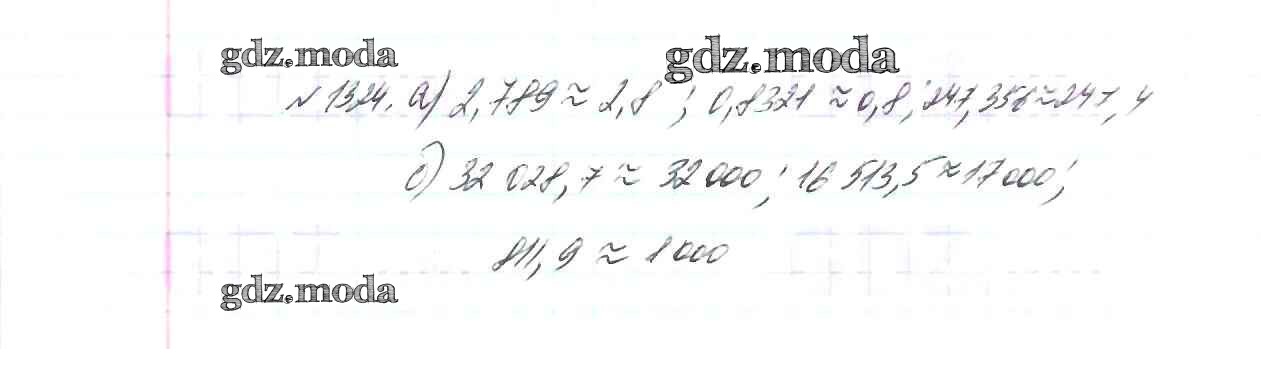 gdz.moda gdz.moda
№ 1324. а) 2,789 ≈ 2,8 ; 0,8321 ≈ 0,8 ; 247,356 ≈ 247,4
б) 32 028,7 ≈ 32 000 ; 16 513,5 ≈ 17 000 ;
811,9 ≈ 1 000
gdz.moda